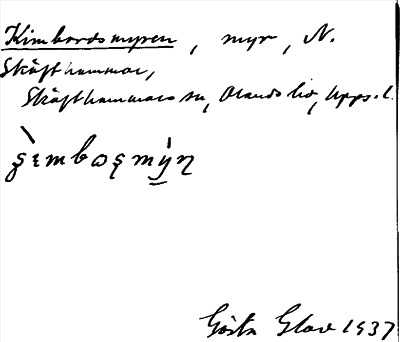 Kimbordsmyren, myr, N.
Skäfthammar,
Skäfthammars sn, Olands hd, Upps. l.
Gösta Glave 1937